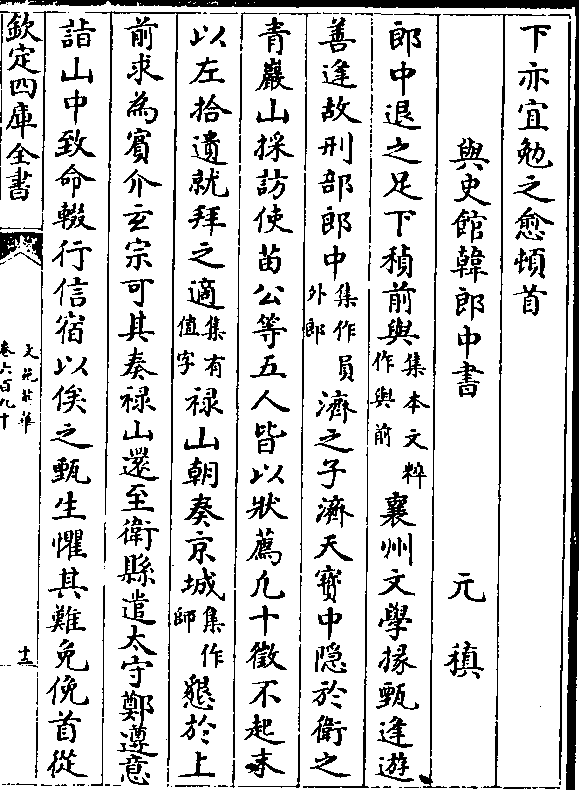 下亦宜勉之愈頓首
與史館韓郎中書　元稹
郎中退之足下稹前與集本文粹作與前襄州文學掾甄逢遊
善逢故刑部郎中集作員外郎濟之子濟天寶中隐於衛之
青巖山採訪使苗公等五人皆以狀薦凡十徵不起末
以左拾遺就拜之適集有值字禄山朝奏京城集作師懇於上
前求為賓介玄宗可其奏禄山還至衛縣遣太守鄭遵意
詣山中致命輟行信宿以俟之甄生懼其難免俛首從
欽定四庫全書
文苑英華
卷六百九十
十三